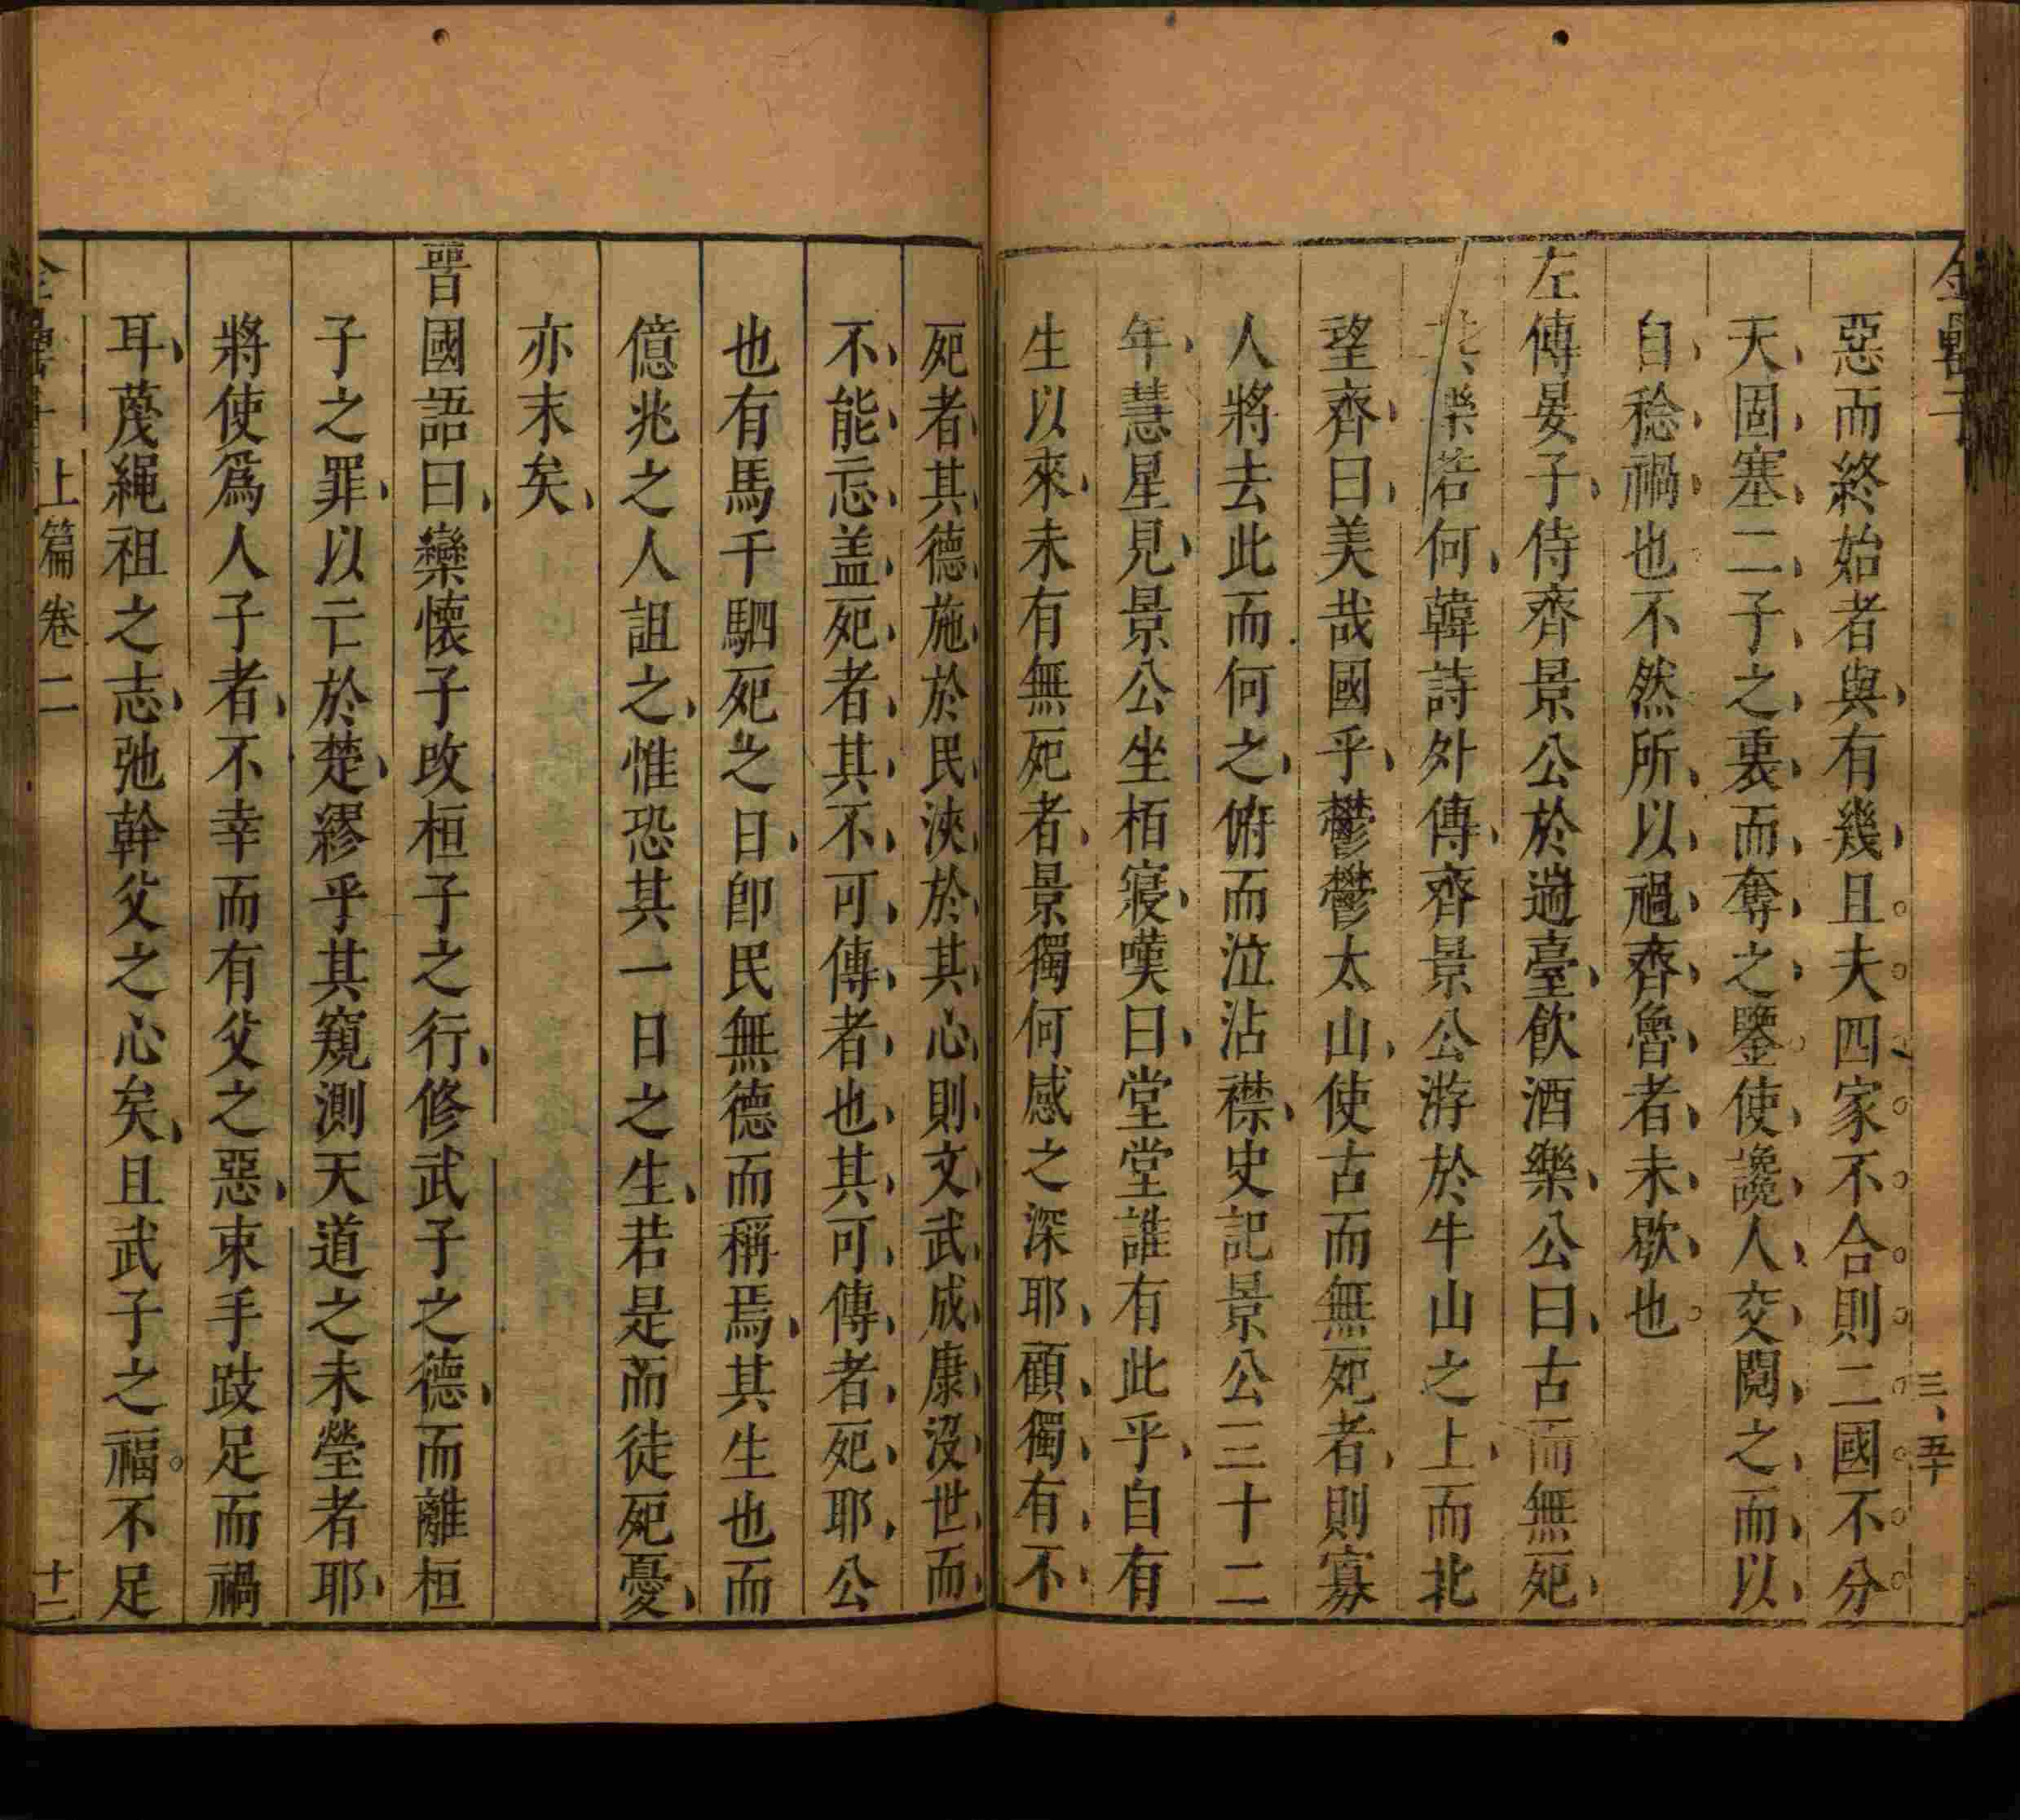 金罍子
三、五十
惡而終始者與有幾且夫四家不合則二國不分
天固塞二子之裏而奪之鑒使讒人交鬩之而以
自稔禍也不然所以禍齊魯者未歇也
左傳晏子侍齊景公於遄臺飲酒樂公曰古而無死
其樂若何韓詩外傳齊景公游於牛山之上而北
望齊曰美哉國乎鬱鬱太山使古而無死者則寡
人將去此而何之俯而泣沾襟史記景公三十二
年慧星見景公坐栢寢嘆曰堂堂誰有此乎自有
生以來未有無死者景獨何感之深耶顧獨有不
死者其德施於民浹於其心則文武成康沒世而
不能忘盖死者其不可傳者也其可傳者死耶公
也有馬千駟死之日卽民無德而稱焉其生也而
億兆之人詛之惟恐其一日之生若是而徒死憂
亦末矣
晋國語曰欒懷子攺桓子之行修武子之德而離桓
子之罪以亡於楚繆乎其窺測天道之未瑩者耶
將使爲人子者不幸而有父之惡束手跂足而禍
耳蔑繩祖之志弛幹父之心矣且武子之福不足
上篇卷二
十二